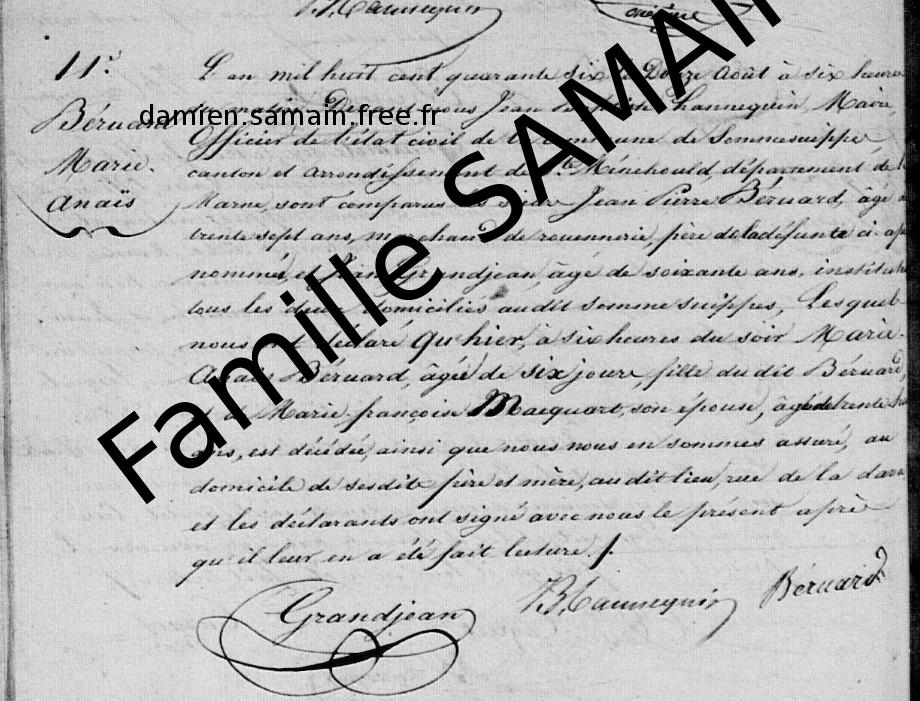 11.e
Béruard
Marie
Anaïs
L'an mil huit cent quarante six le Douze Août à six heures
du matin Devant nous Jean Hannequin, Maire
Officier de l'état civil de la commune de Sommesuippe
canton et arrondissement de Ste Ménehould, département de la
Marne, sont comparus les sieurs Jean Pierre Béruard, âgé
trente sept ans, marchand de rouennerie, père de la défunte ci-ap
nommée et Jean Grandjean, âgé de soixante ans, institute
tous les deux domiciliés audit Sommesuippes, Lesquels
nous ont déclaré qu'hier, à six heures du soir Marie
Anaïs Béruard, âgée de six jours, fille du dit Béruard,
et de Marie françoise Macquart, son épouse, âgée de trente
ans, est décédée, ainsi que nous nous en sommes assuré, au
domicile de sesdits père et mère, audit lieu, rue de la
et les déclarants ont signé avec nous le présent après
qu'il leur en a été fait lecture ./.
Grandjean
Hannequin
Béruard
damien.samain.free.fr
Famille SAMAIN